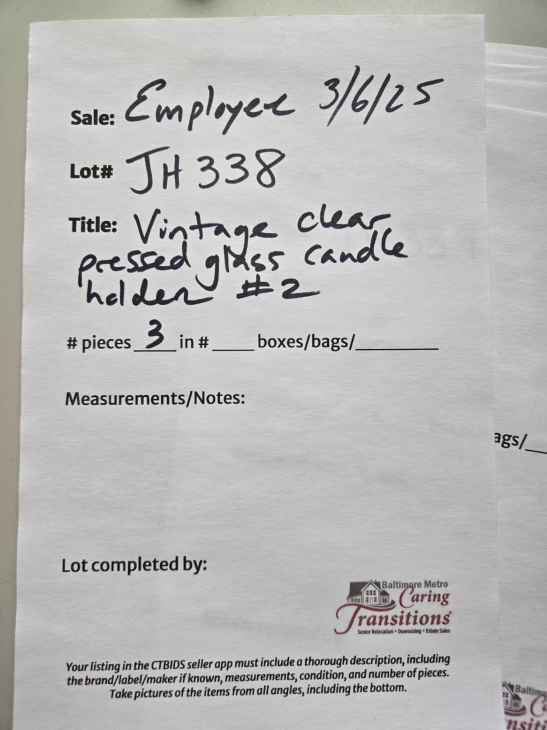 Sale: Employee 3/6/25
Lot# JH 338
Title: Vintage clear
pressed glass candle
holder #2
# pieces 3 in # ____ boxes/bags/________
Measurements/Notes:
ags/__
Lot completed by:
Baltimore Metro
Caring
Transitions
Senior Relocation • Downsizing • Estate Sales
Your listing in the CTBIDS seller app must include a thorough description, including
the brand/label/maker if known, measurements, condition, and number of pieces.
Take pictures of the items from all angles, including the bottom.
Baltim
C
nsiti